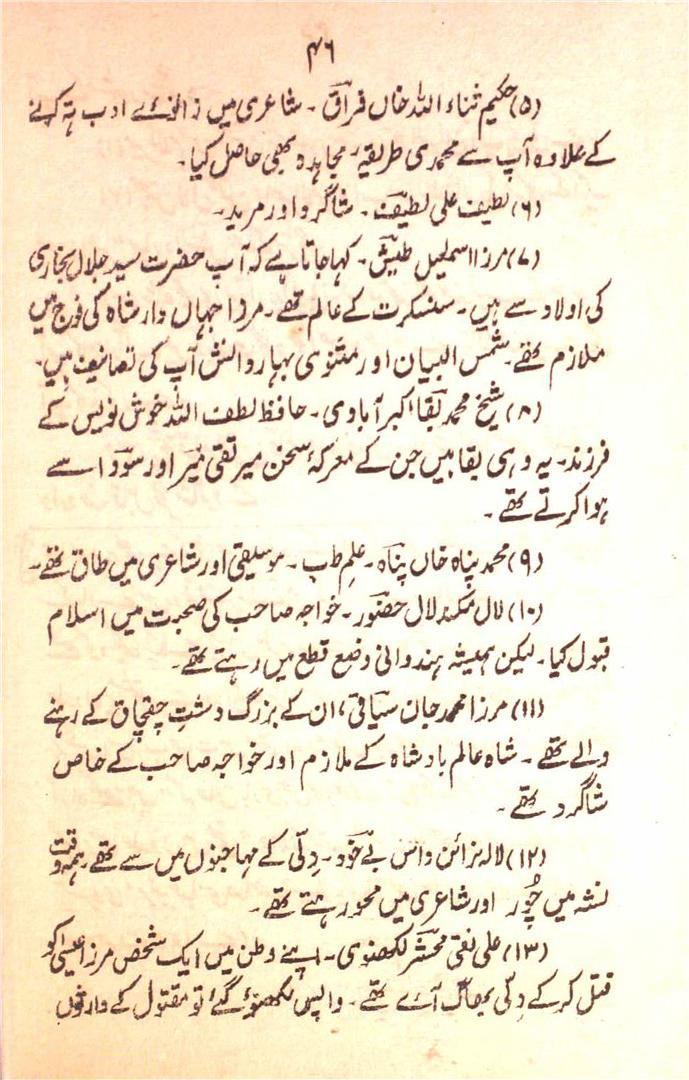 ۴۶
(۵) حکیم ثناء اللہ خاں فراق۔ شاعری میں زانوئے ادب تہ کرنے
کے علاوہ آپ سے محمدی طریقۂ مجاہدہ بھی حاصل کیا۔
(۶) لطیف علی لطیف۔ شاگرد اور مرید۔
(۷) مرزا اسمٰعیل طپش۔ کہا جاتا ہے کہ آپ حضرت سید جلال بخاری
کی اولاد سے ہیں۔ سنسکرت کے عالم تھے۔ مرزا جہاں دار شاہ کی فوج میں
ملازم تھے۔ شمس البیان اور مثنوی بہار دانش آپ کی تصانیف ہیں۔
(۸) شیخ محمد بقا اکبر آبادی۔ حافظ لطف اللہ خوش نویس کے
فرزند۔ یہ وہی بقا ہیں جن کے معرکۂ سخن میر تقی میر اور سودا سے
ہوا کرتے تھے۔
(۹) محمد پناہ خاں پناہ۔ علمِ طب۔ موسیقی اور شاعری میں طاق تھے۔
(۱۰) لال مکند لال حضور۔ خواجہ صاحب کی صحبت میں اسلام
قبول کیا۔ لیکن ہمیشہ ہندوانی وضع قطع میں رہتے تھے۔
(۱۱) مرزا محمد جان سیاقی، ان کے بزرگ دشتِ چقچاق کے رہنے
والے تھے۔ شاہ عالم بادشاہ کے ملازم اور خواجہ صاحب کے خاص
شاگرد تھے۔
(۱۲) لالہ نرائن داس بے خود۔ دِلّی کے مہاجنوں میں سے تھے۔ ہمہ وقت
نشہ میں چُور اور شاعری میں محو رہتے تھے۔
(۱۳) علی نقی محشر لکھنوی۔ اپنے وطن میں ایک شخص مرزا عیسیٰ کو
قتل کر کے دِلّی بھاگ آئے تھے۔ واپس لکھنؤ گئے تو مقتول کے وارثوں